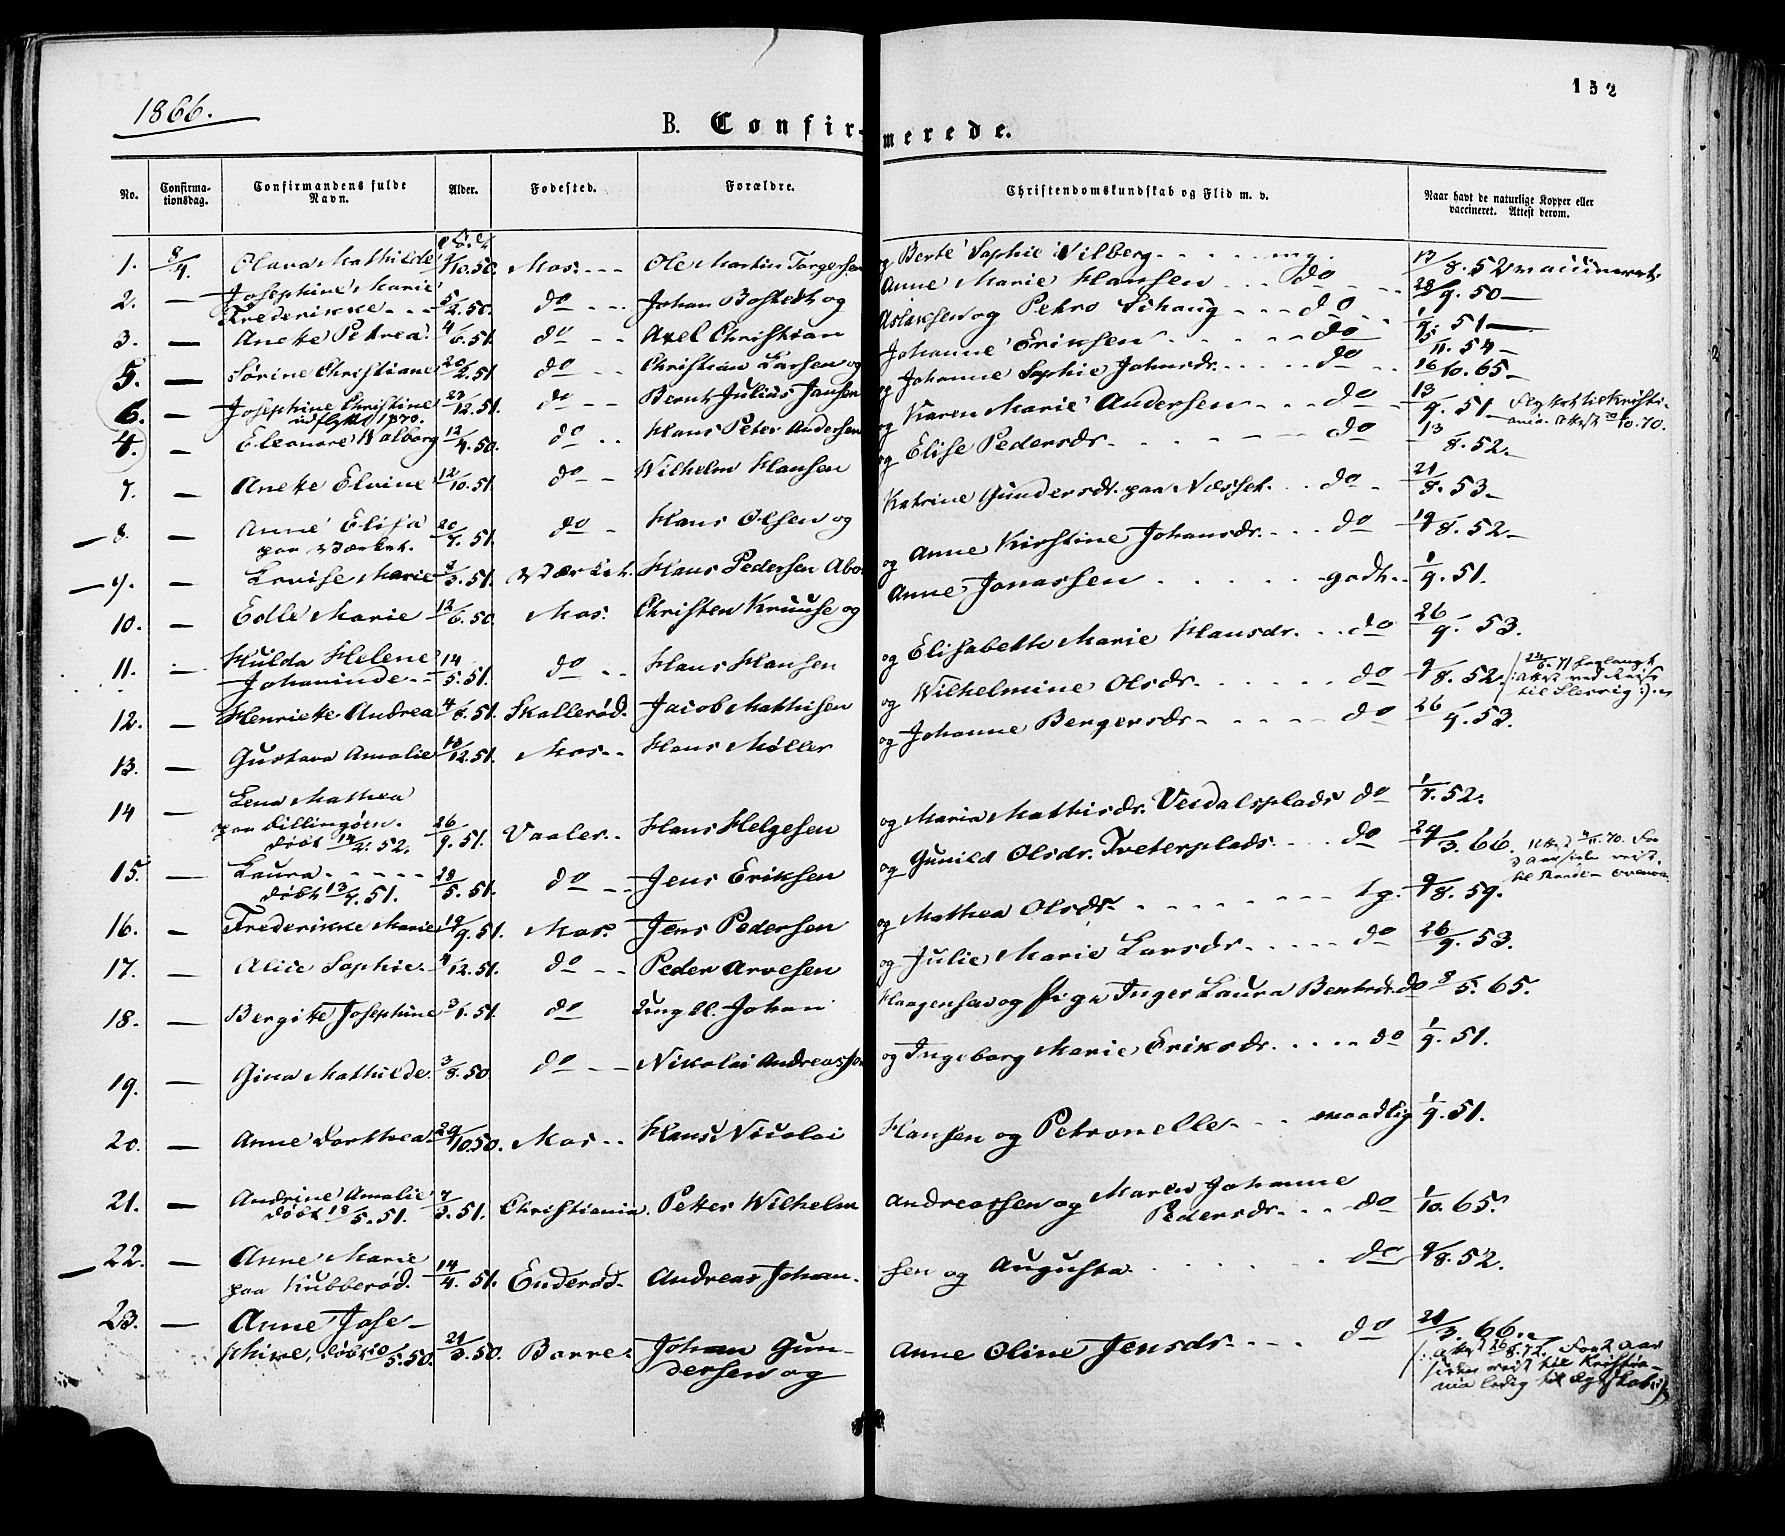 1866.
152
B. Confirmerede.
No. Confirmationsdag. Confirmandens fulde Navn. Alder. Fødested. Forældre. Christendomskundskab og Flid m. v. Naar havt de naturlige Kopper eller vaccineret. Attest derom.
1. 8/4. Olava Mathilde /10.50. Mos. Ole Martin Torgersen og Berte Sophie Vilberg mg. 17/8.52 vaccineret.
2. — Josephine Marie
Frederikke 5/2.50. do Johan Bostedt og Anne Marie Hansen do 28/9.50 —
3. — Anette Petrea 4/6.51. do Axel Christian Aslaksen og Petro Schaug do 1/9.51 —
5. — Sørine Christiane 20/2.51 do Christian Larsen og Johanne Eriksen do 15/11.54 —
6. — Josephine Christine 23/12.51. do Bernt Julius Jansen og Johanne Sophie Johnsdr. do 16/10.65 —
udflyttet 1870.
4. — Eleonore Valborg 12/4.50. do Hans Peter Andersen og Karen Marie Andersen do 13/9.51 —
7. — Anette Elvine 12/10.51. do Wilhelm Hansen og Elise Pedersdr. do 13/8.52.
8. — Anne Elisa
paa Værket. 20/7.51. do Hans Olsen og Katrine Gundersdr. paa Næsset. do 21/8.53 —
9. — Lovise Marie 8/3.51. Værket. Hans Pedersen Abo og Anne Kirstine Johansdr. do 19/8.52 —
10. — Edle Marie 12/6.50. Mos. Christen Kruuse og Anne Jonassen godt. 1/9.51.
11. — Hulda Helene
Johaninde 14/5.51. do Hans Hansen og Elisabeth Marie Hansdr. do 26/9.53.
12. — Henriette Andrea 4/8.51. Skallerød. Jacob Mathisen og Wilhelmine Olsdr. do 9/8.52.
13. — Gustava Amalie 10/12.51. Mos. Hans Møller og Johanne Bergersdr. do 26/9.53.
14 — Lena Mathea
paa Dillingøen.
døbt 14/4.52. 26/9.51. Vaaler. Hans Helgesen og Maria Mathisdr. Veidalsplads do 1/7.52.
15. — Laura
døbt 13/7.51. 28/5.51. do Jens Eriksen og Gunild Olsdr. Tveterplads do 24/3.66.
16. — Frederikke Marie 19/9.51. Mos. Jens Pedersen og Mathea Olsdr. tg. 9/8.59.
17. — Alice Sophie /12.51. do Peder Arvesen og Julie Marie Larsdr. do 26/9.53.
18. — Bergitte Josephine 3/6.51. do Ungkl. Johan Haagensen og Pige Inger Laura Bentsdr. do 8/5.65.
19. — Gina Mathilde 3/8.50 do Nikolai Andreassen og Ingeborg Marie Eriksdr. do 1/9.51.
20. — Anne Dorthea 29/10.50. Mos Hans Nicolai Hansen og Petronelle maadlig 1/9.51.
21. — Andrine Amalie
døbt 18/5.51. 7/3.51. Christiania. Petter Wilhelm Andreassen og Maren Johanne
Pedersdr. do 1/10.65.
22. — Anne Marie
paa Kubberød. 14/4.51. Enderød. Andreas Johansen og Augusta do 9/8.52.
23. — Anne Josephine, døbt 10/5.50. 21/3.50. Borre. Johan Gundersen og Anne Oline Jensdr. do 21/3.66.
Attest 26/8.72. For 2 Aar
siden reist til Kristiania
ledig til Ægteskab